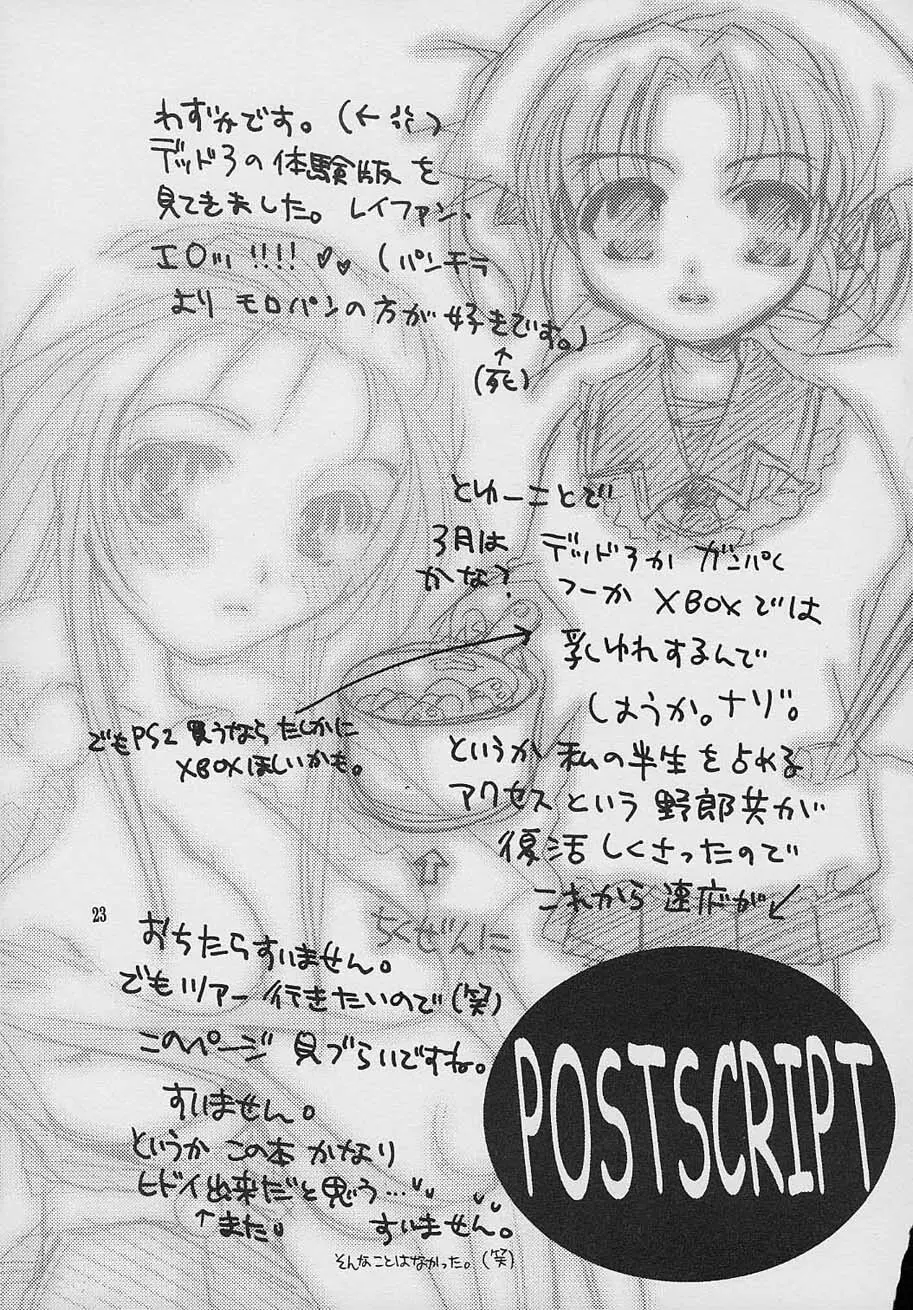 わずかです。(←
デッド3の体験版を
見てきました。レイファン、
エロッ!!!!♡♡(パンチラ
よりモロパンの方が好きです。)
↑
(死)
とゆーことで
3月は デッド3か ガンパく
かな? フーか XBOXでは
乳しゆれするんで
しょうか。ナゾ。
でもPS2買うならたしかに
XBOXほしいかも。
というか 私の半生を占める
アクセスという野郎共が
復活しくさったので
これから 速度が↙
⇧
ちくぜんに
おちたらすいません。
でもツアー行きたいので(笑)
このページ 見づらいですね。
すいません。
というか この本 かなり
ヒドイ出来だと思う…
↑また すいません。
そんなことはなかった。(笑)
23
POSTSCRIPT